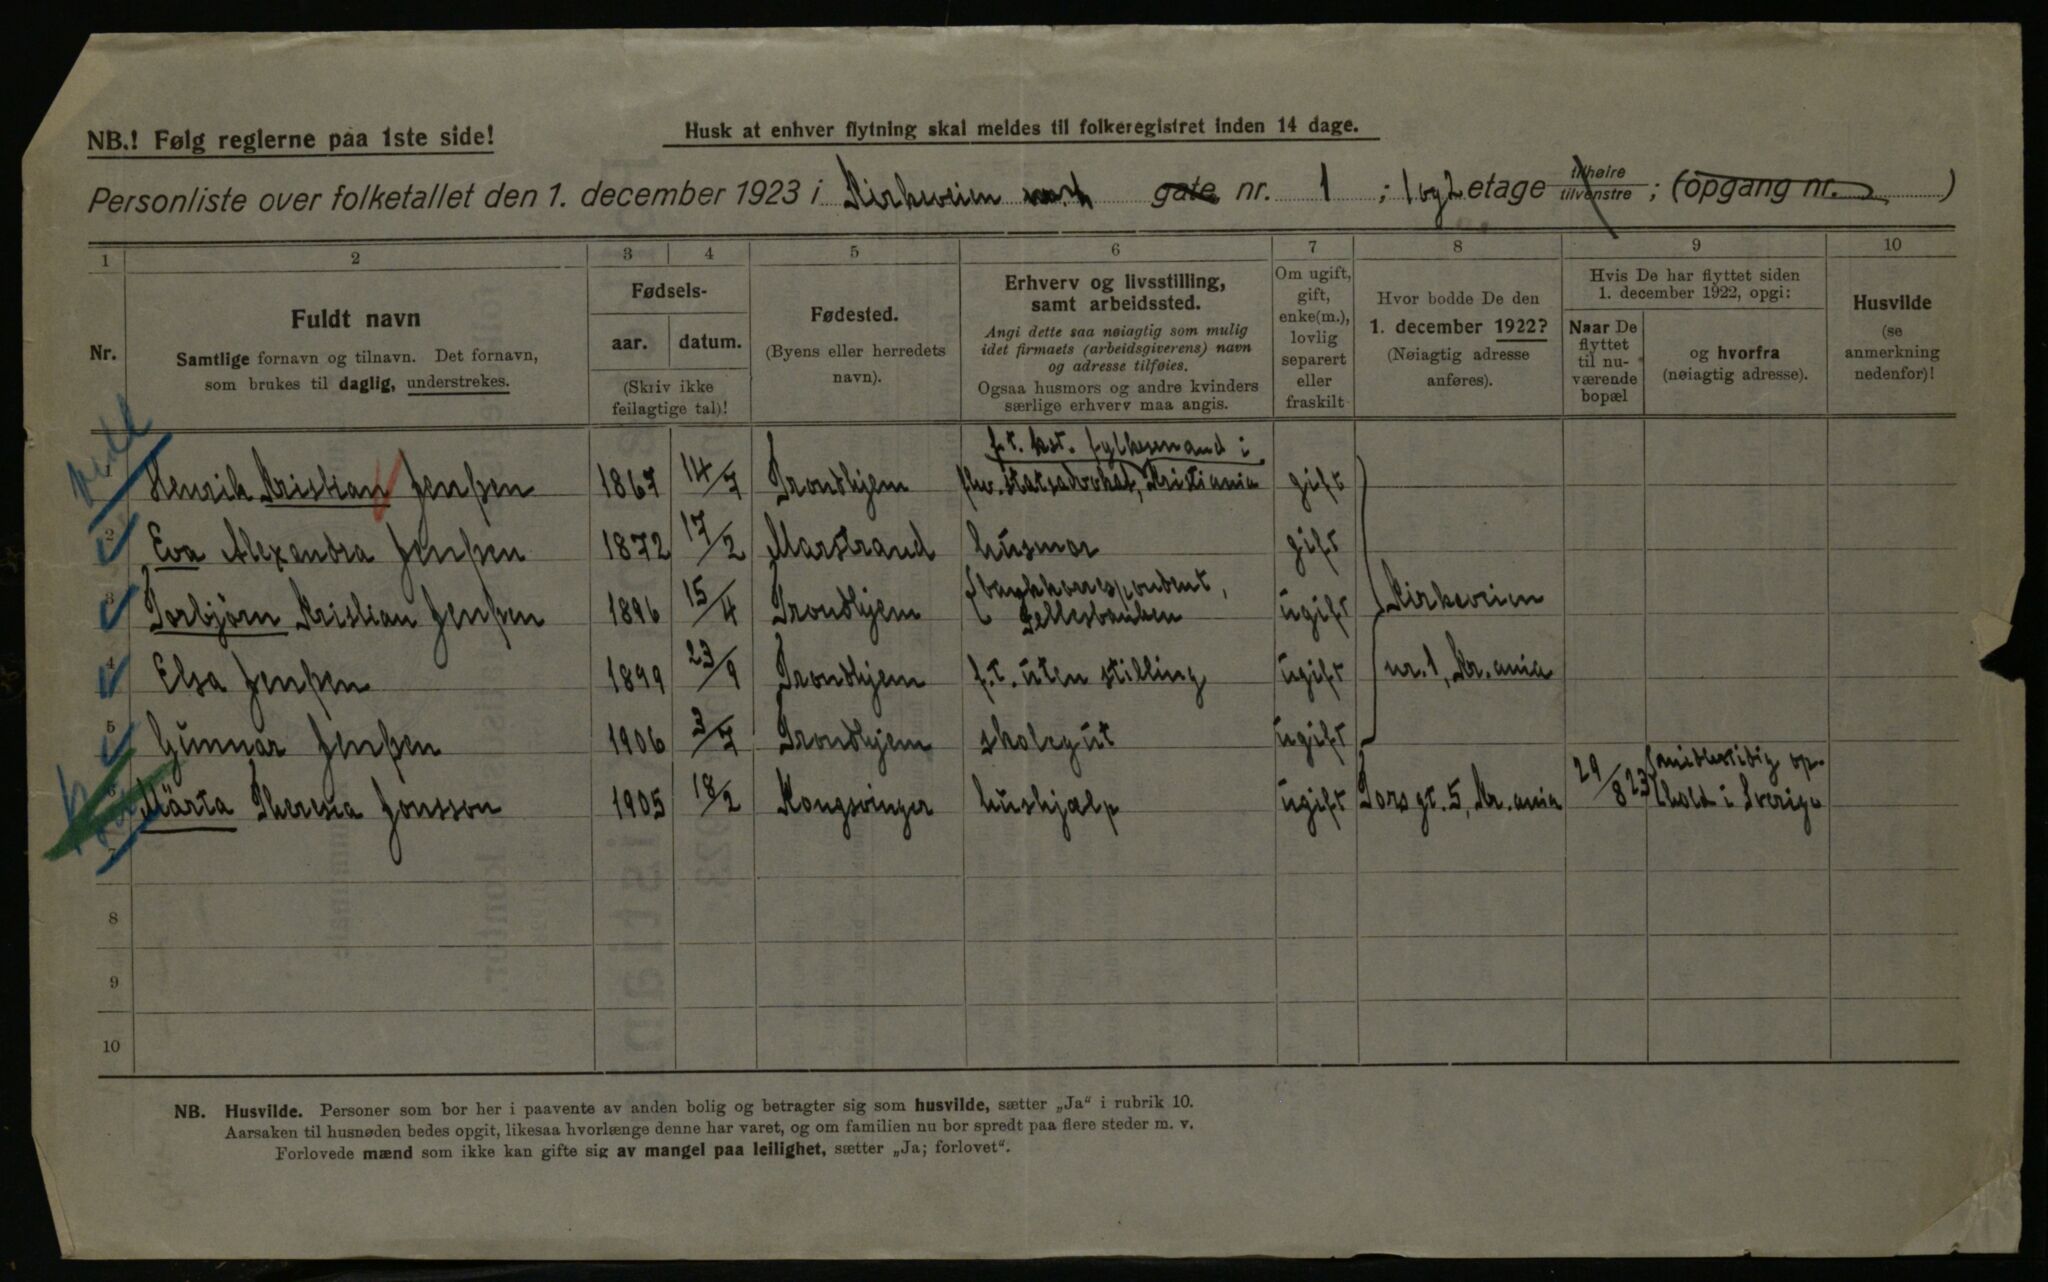 NB.! Følg reglerne paa 1ste side!
Husk at enhver flytning skal meldes til folkeregistret inden 14 dage.
Personliste over folketallet den 1. december 1923 i Kirkeveien gate nr. 1 ; 1 og 2 etage tilhøire tilvenstre ; (opgang nr. )
1 2 3 4 5 6 7 8 9 10
Nr.
Fuldt navn
Samtlige fornavn og tilnavn. Det fornavn,
som brukes til daglig, understrekes.
Fødsels-
aar. datum.
(Skriv ikke
feilagtige tal)!
Fødested.
(Byens eller herredets
navn).
Erhverv og livsstilling,
samt arbeidssted.
Angi dette saa nøiagtig som mulig
idet firmaets (arbeidsgiverens) navn
og adresse tilføies.
Ogsaa husmors og andre kvinders
særlige erhverv maa angis.
Om ugift,
gift,
enke(m.),
lovlig
separert
eller
fraskilt
Hvor bodde De den
1. december 1922?
(Nøiagtig adresse
anføres).
Hvis De har flyttet siden
1. december 1922, opgi:
Naar De
flyttet
til nu-
værende
bopæl
og hvorfra
(nøiagtig adresse).
Husvilde
(se
anmerkning
nedenfor)!
f.t. kst. fylkesmand i
Henrik Kristian Jenssen 1867 14/7 Trondhjem statsadvokat, Kristiania gift
2 Eva Alexandra Jenssen 1872 17/2 Marstrand husmor gift
3 Torbjørn Kristian Jenssen 1896 15/4 Trondhjem bankkorrespondent, Fellesbanken ugift Kirkeveien
4 Elsa Jenssen 1899 23/9 Trondhjem f.t. uten stilling ugift nr. 1, Kr.ania
5 Gunnar Jenssen 1906 3/7 Trondhjem skolegut ugift
6 Märta Theresia Jonsson 1905 18/2 Kongsvinger hushjælp ugift Torsgt. 5, Kr.ania 29/8 23 midlertidig op-
hold i Sverige
7
8
9
10
NB. Husvilde. Personer som bor her i paavente av anden bolig og betragter sig som husvilde, sætter „Ja“ i rubrik 10.
Aarsaken til husnøden bedes opgit, likesaa hvorlænge denne har varet, og om familien nu bor spredt paa flere steder m. v.
Forlovede mænd som ikke kan gifte sig av mangel paa leilighet, sætter „Ja; forlovet“.